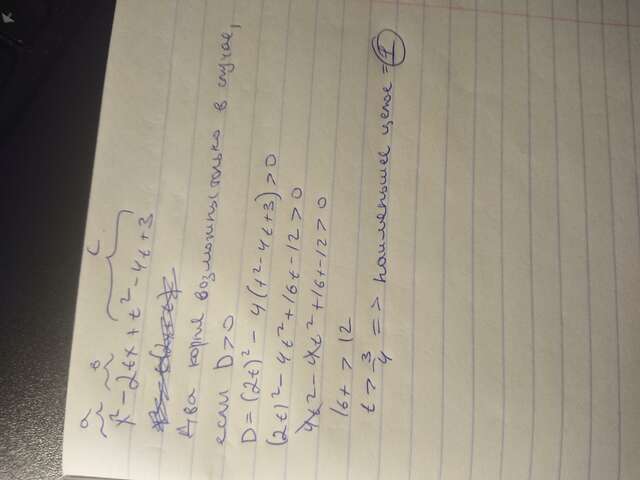 a b c
x² - 2tx + t² - 4t + 3
Два корня возможны только в случае,
если D>0
D = (2t)² - 4(t² - 4t + 3) > 0
(2t)² - 4t² + 16t - 12 > 0
4t² - 4t² + 16t - 12 > 0
16t > 12
t > 3/4 => наименьшее целое = 1